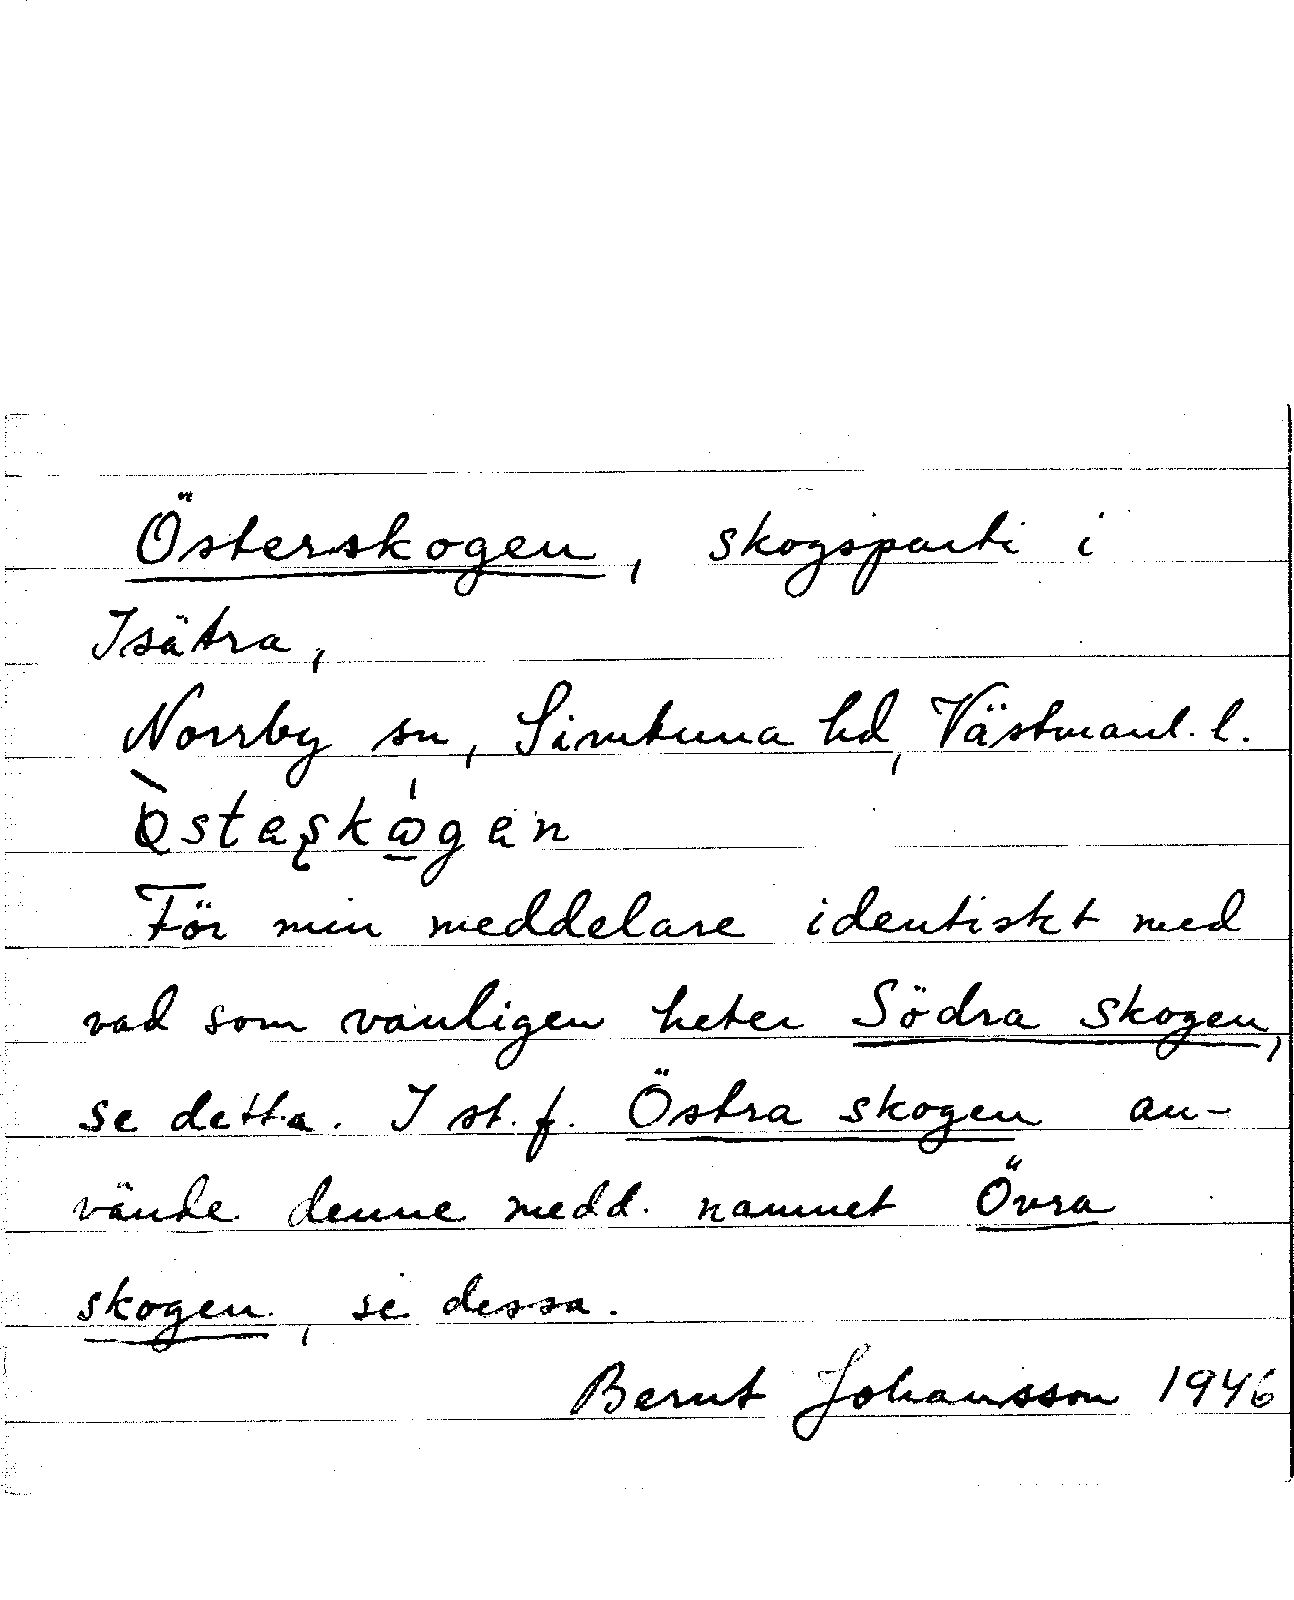 Österskogen, skogsparti i
Isätra,
Norrby sn, Simtuna hd, Västmanl. l.
Östaskogen
För min meddelare identiskt med
vad som vanligen heter Södra skogen,
se detta. I st. f. Östra skogen an-
vände denne medd. namnet Övra
skogen, se dessa.
Bernt Johansson 1946